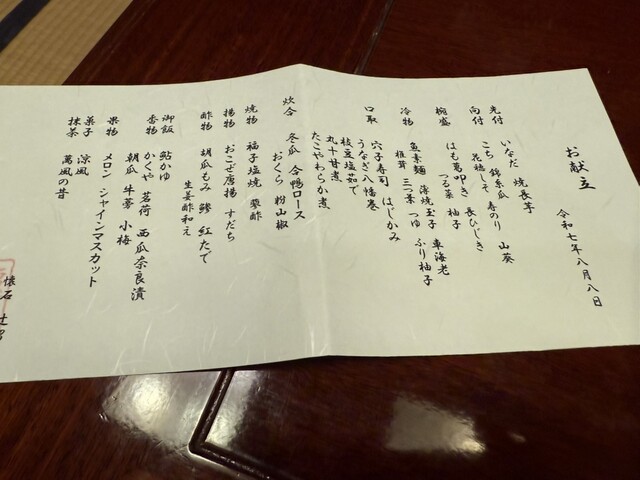 お献立
令和七年八月八日
先付 いなだ 焼長芋
向付 こち 錦糸瓜 山葵
花穂しそ 寿のり
椀盛 はも葛叩き 長ひじき
つる菜 柚子
冷物 魚素麺 薄焼玉子 車海老
椎茸 三つ葉 つゆ ふり柚子
口取 穴子寿司 はじかみ
うなぎ八幡巻
枝豆塩茹で
丸十甘煮
たこやわらか煮
炊合 冬瓜 合鴨ロース
おくら 粉山椒
焼物 福子塩焼 蓼酢
揚物 おこぜ唐揚 すだち
酢物 胡瓜もみ 鯵 紅たで
生姜酢和え
御飯 鮎かゆ
香物 かくや 茗荷 西瓜奈良漬
朝瓜 牛蒡 小梅
果物 メロン シャインマスカット
菓子 涼風
抹茶 萬風の昔
懐石 辻